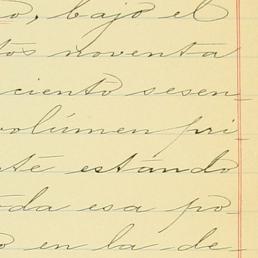 o, bajo el
tos noventa
ciento sesen-
volúmen pri-
nte estando
oda esa po-
o en la de-